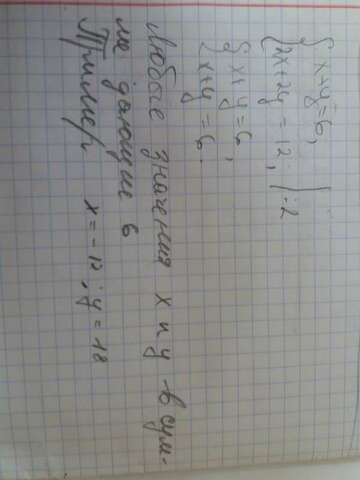 { x+y=6,
{ 2x+2y = 12, | :2
{ x+y=6,
{ x+y=6.
Любые значения x и y в сум-
ме дающие 6
Пример x=-12; y=18